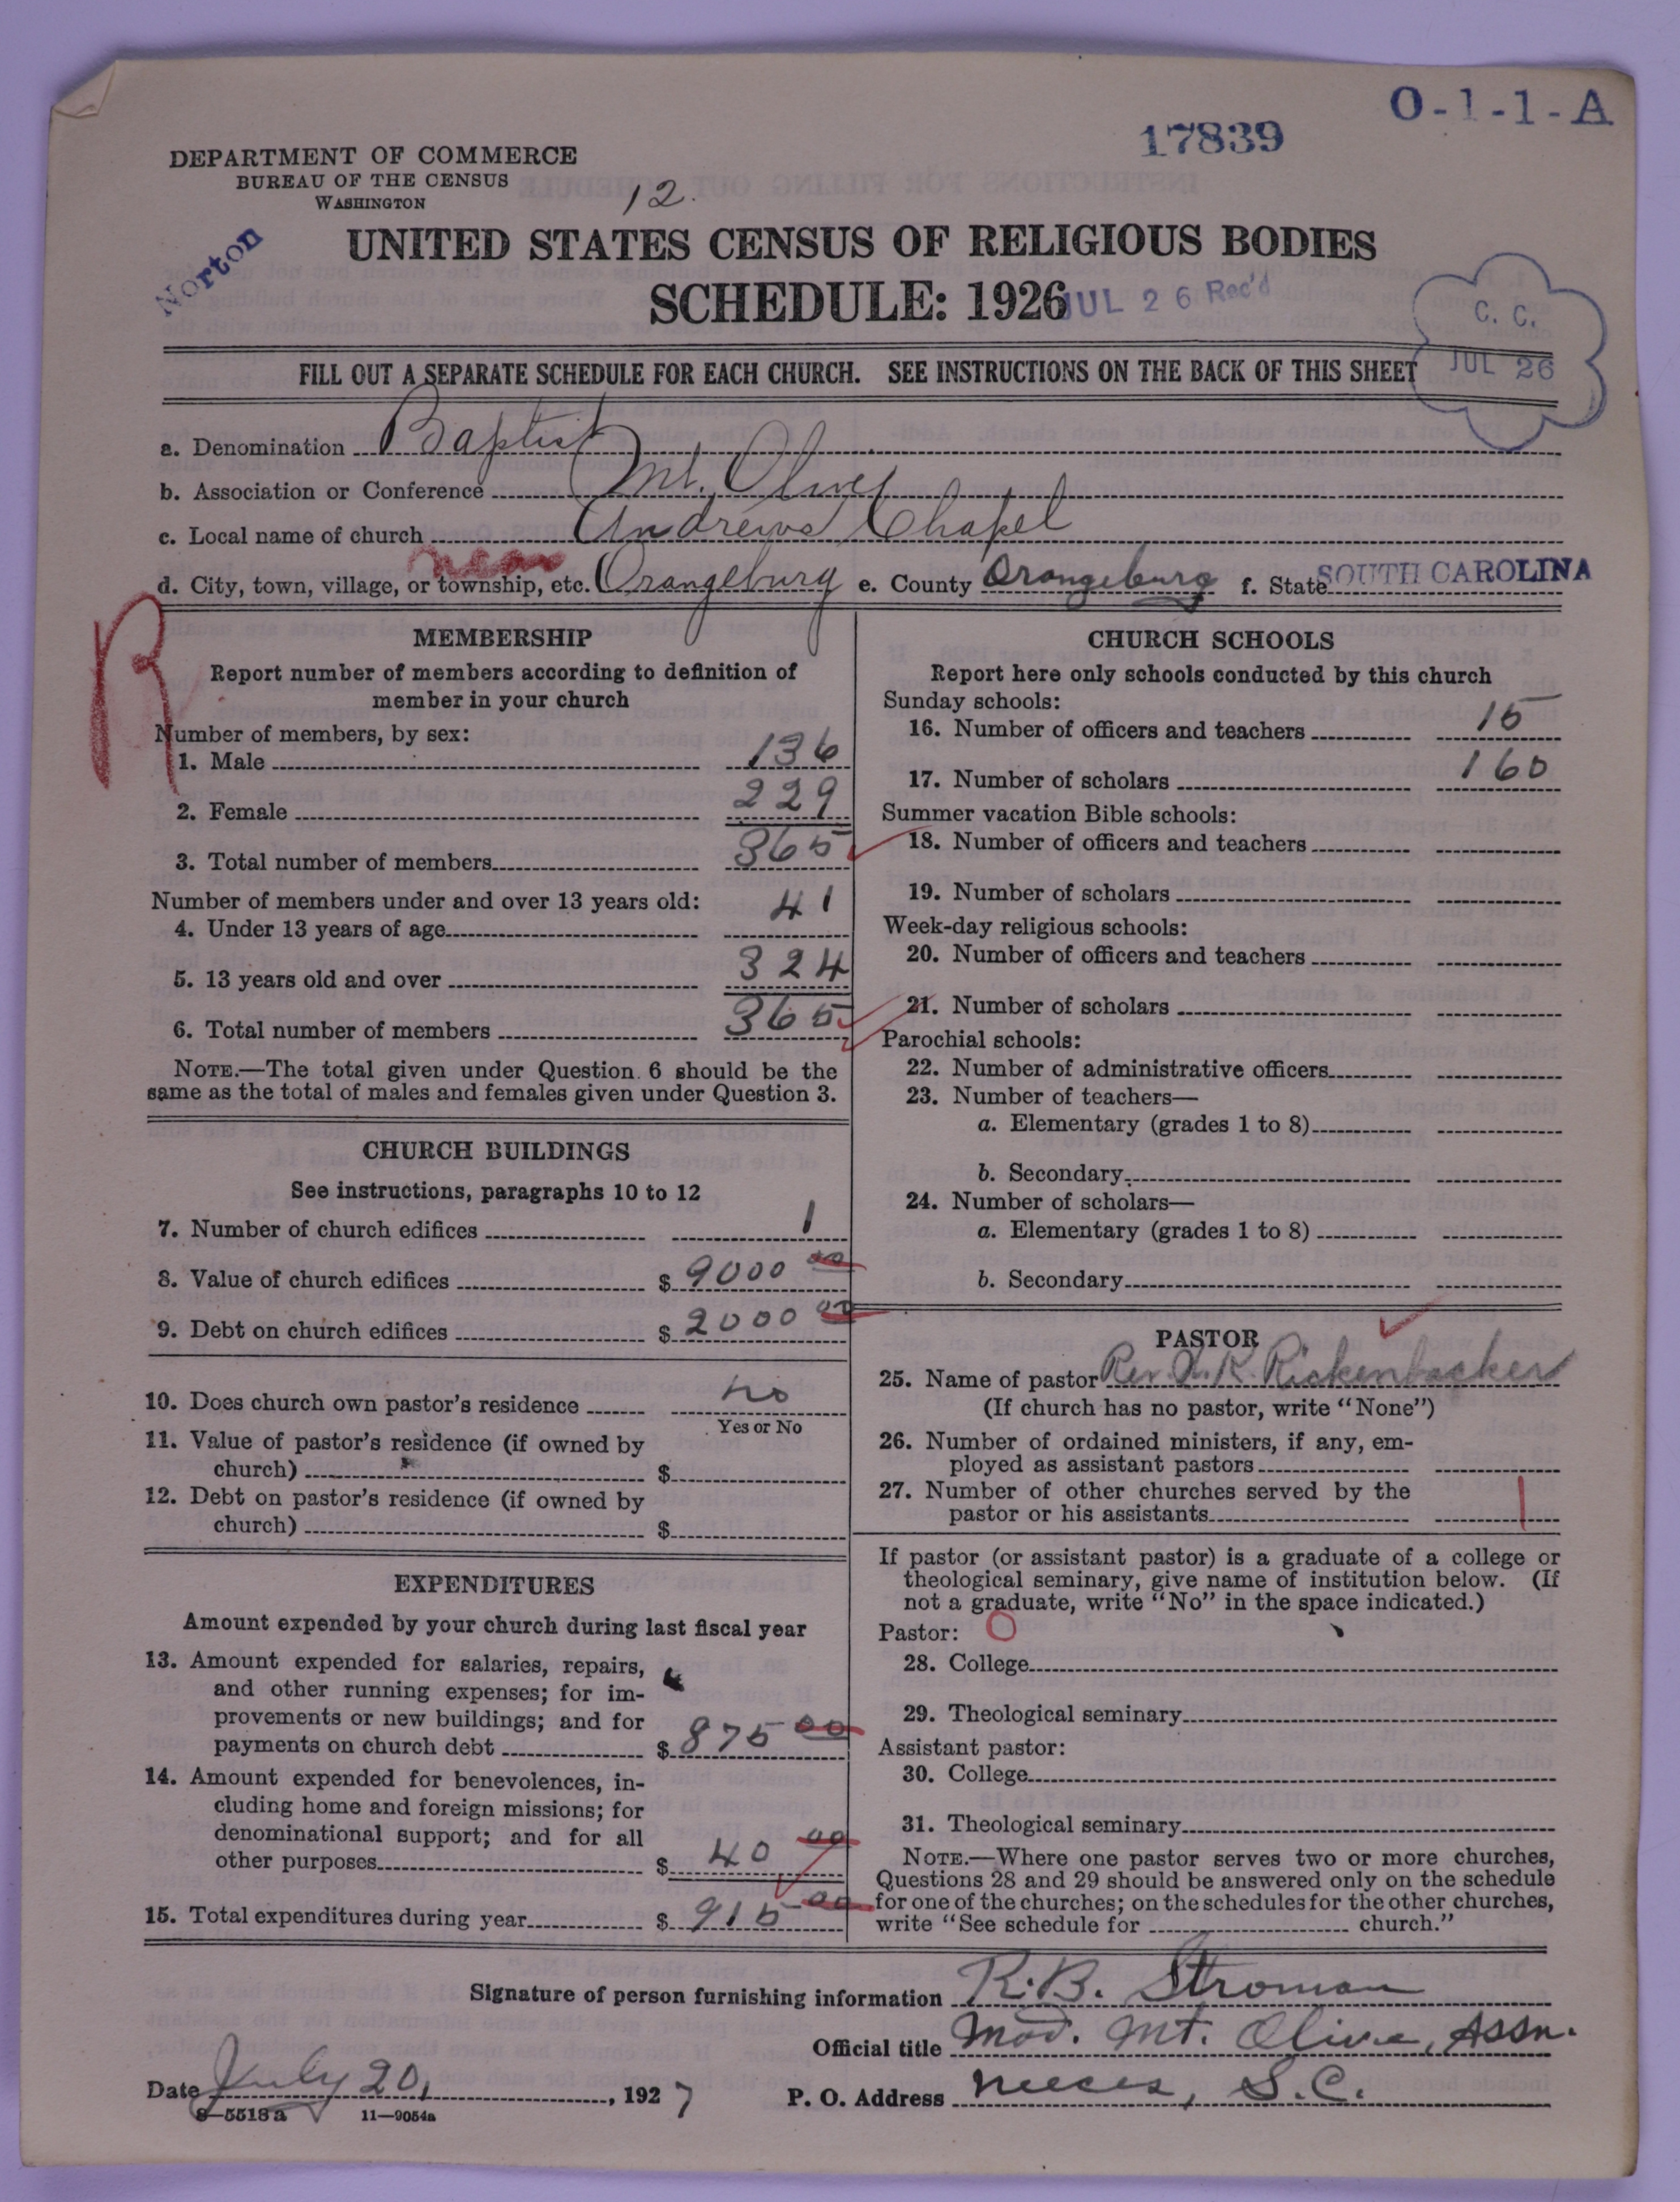 O-1-1-A
17839
DEPARTMENT OF COMMERCE
BUREAU OF THE CENSUS
WASHINGTON
12.
Norton
UNITED STATES CENSUS OF RELIGIOUS BODIES
SCHEDULE: 1926
JUL 26 Rec'd
C. C.
JUL 26
FILL OUT A SEPARATE SCHEDULE FOR EACH CHURCH. SEE INSTRUCTIONS ON THE BACK OF THIS SHEET
a. Denomination Baptist
b. Association or Conference Mt. Olive
c. Local name of church Andrews Chapel
near
d. City, town, village, or township, etc. Orangeburg e. County Orangeburg f. State SOUTH CAROLINA
R
MEMBERSHIP
Report number of members according to definition of
member in your church
Number of members, by sex:
1. Male 136
2. Female 229
3. Total number of members 365
Number of members under and over 13 years old:
4. Under 13 years of age 41
5. 13 years old and over 324
6. Total number of members 365
NOTE.—The total given under Question 6 should be the
same as the total of males and females given under Question 3.
CHURCH BUILDINGS
See instructions, paragraphs 10 to 12
7. Number of church edifices 1
8. Value of church edifices $ 9000 00
9. Debt on church edifices $ 2000 00
10. Does church own pastor's residence no
Yes or No
11. Value of pastor's residence (if owned by
church) $
12. Debt on pastor's residence (if owned by
church) $
EXPENDITURES
Amount expended by your church during last fiscal year
13. Amount expended for salaries, repairs,
and other running expenses; for im-
provements or new buildings; and for
payments on church debt $ 875 00
14. Amount expended for benevolences, in-
cluding home and foreign missions; for
denominational support; and for all
other purposes $ 40 00
15. Total expenditures during year $ 915 00
CHURCH SCHOOLS
Report here only schools conducted by this church
Sunday schools:
16. Number of officers and teachers 15
17. Number of scholars 160
Summer vacation Bible schools:
18. Number of officers and teachers
19. Number of scholars
Week-day religious schools:
20. Number of officers and teachers
21. Number of scholars
Parochial schools:
22. Number of administrative officers
23. Number of teachers—
a. Elementary (grades 1 to 8)
b. Secondary
24. Number of scholars—
a. Elementary (grades 1 to 8)
b. Secondary
PASTOR
25. Name of pastor Rev. K. Rickenbacker
(If church has no pastor, write "None")
26. Number of ordained ministers, if any, em-
ployed as assistant pastors
27. Number of other churches served by the
pastor or his assistants 1
If pastor (or assistant pastor) is a graduate of a college or
theological seminary, give name of institution below. (If
not a graduate, write "No" in the space indicated.)
Pastor: O
28. College
29. Theological seminary
Assistant pastor:
30. College
31. Theological seminary
NOTE.—Where one pastor serves two or more churches,
Questions 28 and 29 should be answered only on the schedule
for one of the churches; on the schedules for the other churches,
write "See schedule for church."
Signature of person furnishing information R. B. Stroman
Official title Mod. Mt. Olive, Assn.
Date July 20, 1927 P. O. Address Neeces, S.C.
8—5518a 11—9054a